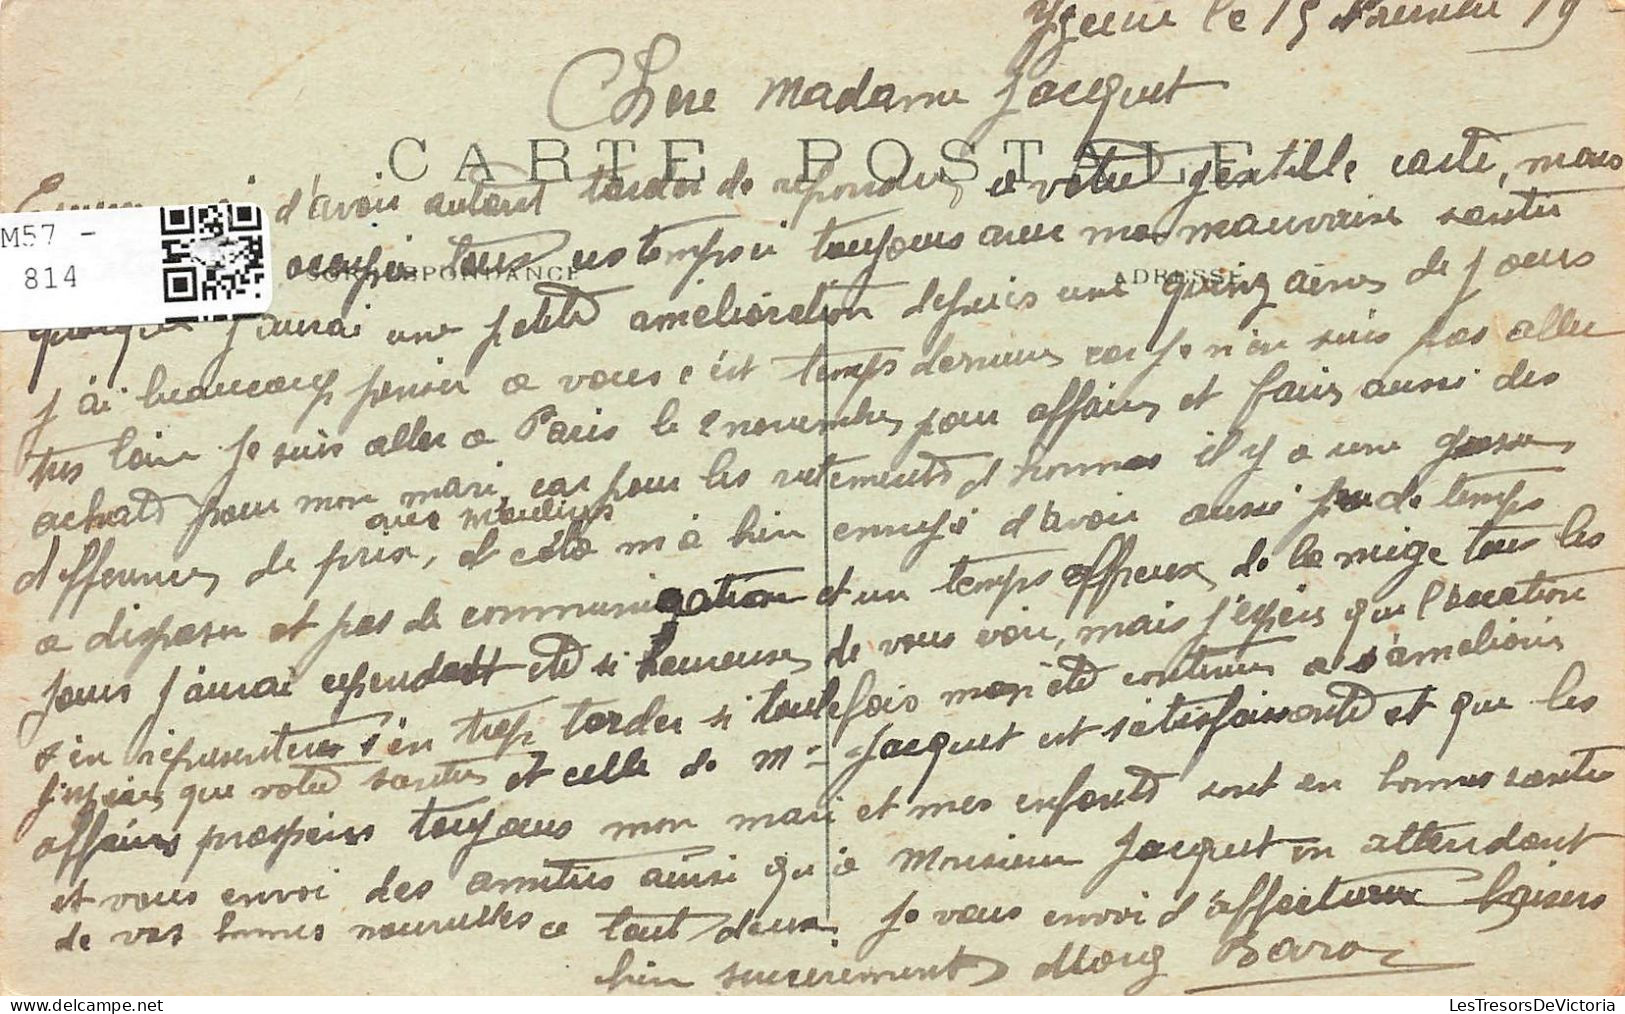 le 15 19
Chere Madame Jacquet
CARTE POSTALE
d'avoir autant tarder de repondre, a votre gentille carte, mais
M57 -
814
occupée tous ces temps ci toujours avec ma mauvaise santée
CORRESPONDANCE
ADRESSE
quoique j'aurai une petite amelioration depuis une quinzaines de jours
j'ai beaucoup penser a vous c'est temps derniers car je n'en suis pas aller
tres loin je suis aller a Paris le 2 novembre, pour affaires et faire aussi des
achats pour mon mari, car pour les vetements d'hommes il y a une grosse
avec Moulins
differences de prix, et cela m'a bien ennuyé d'avoir aussi peu de temps
a disposer et pas de communication et un temps affreux, de la neige tous les
jours j'aurai cependant été si heureuse, de vous voir, mais j'espère que l'occation
s'en representera s'en trop tarder si toutefois mon été continue a s'ameliorer
j'espere, que votre santée et celle de Mr Jacquet est satisfaisante et que les
affaires prosperes toujours mon mari et mes enfants sont en bonnes santée
et vous envoi des amities ainsi qu'a Monsieur Jacquet en attendant
de vos bonnes nouvelles a tout deux. Je vous envoi d'affectueux baisers
bien sincerement Marg Baron
LesTresorsDeVictoria